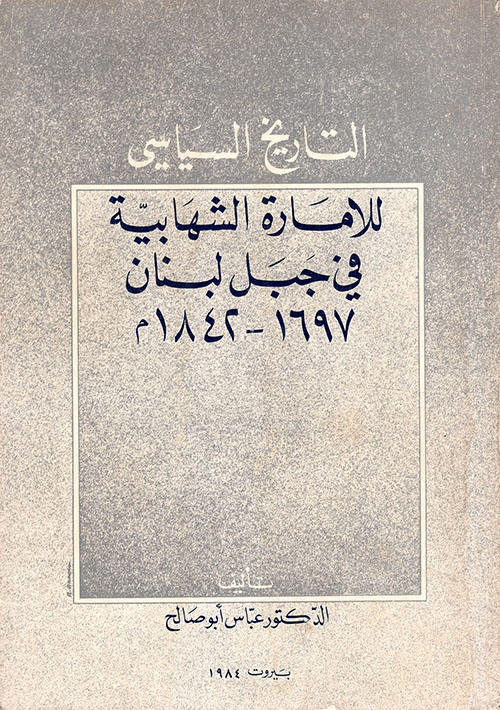 التاريخ السياسي
للامارة الشهابيّة
في جبَل لبنان
١٦٩٧ - ١٨٤٢ م
تأليف
الدّكتور عبّاس أبو صالح
بيروت ١٩٨٤